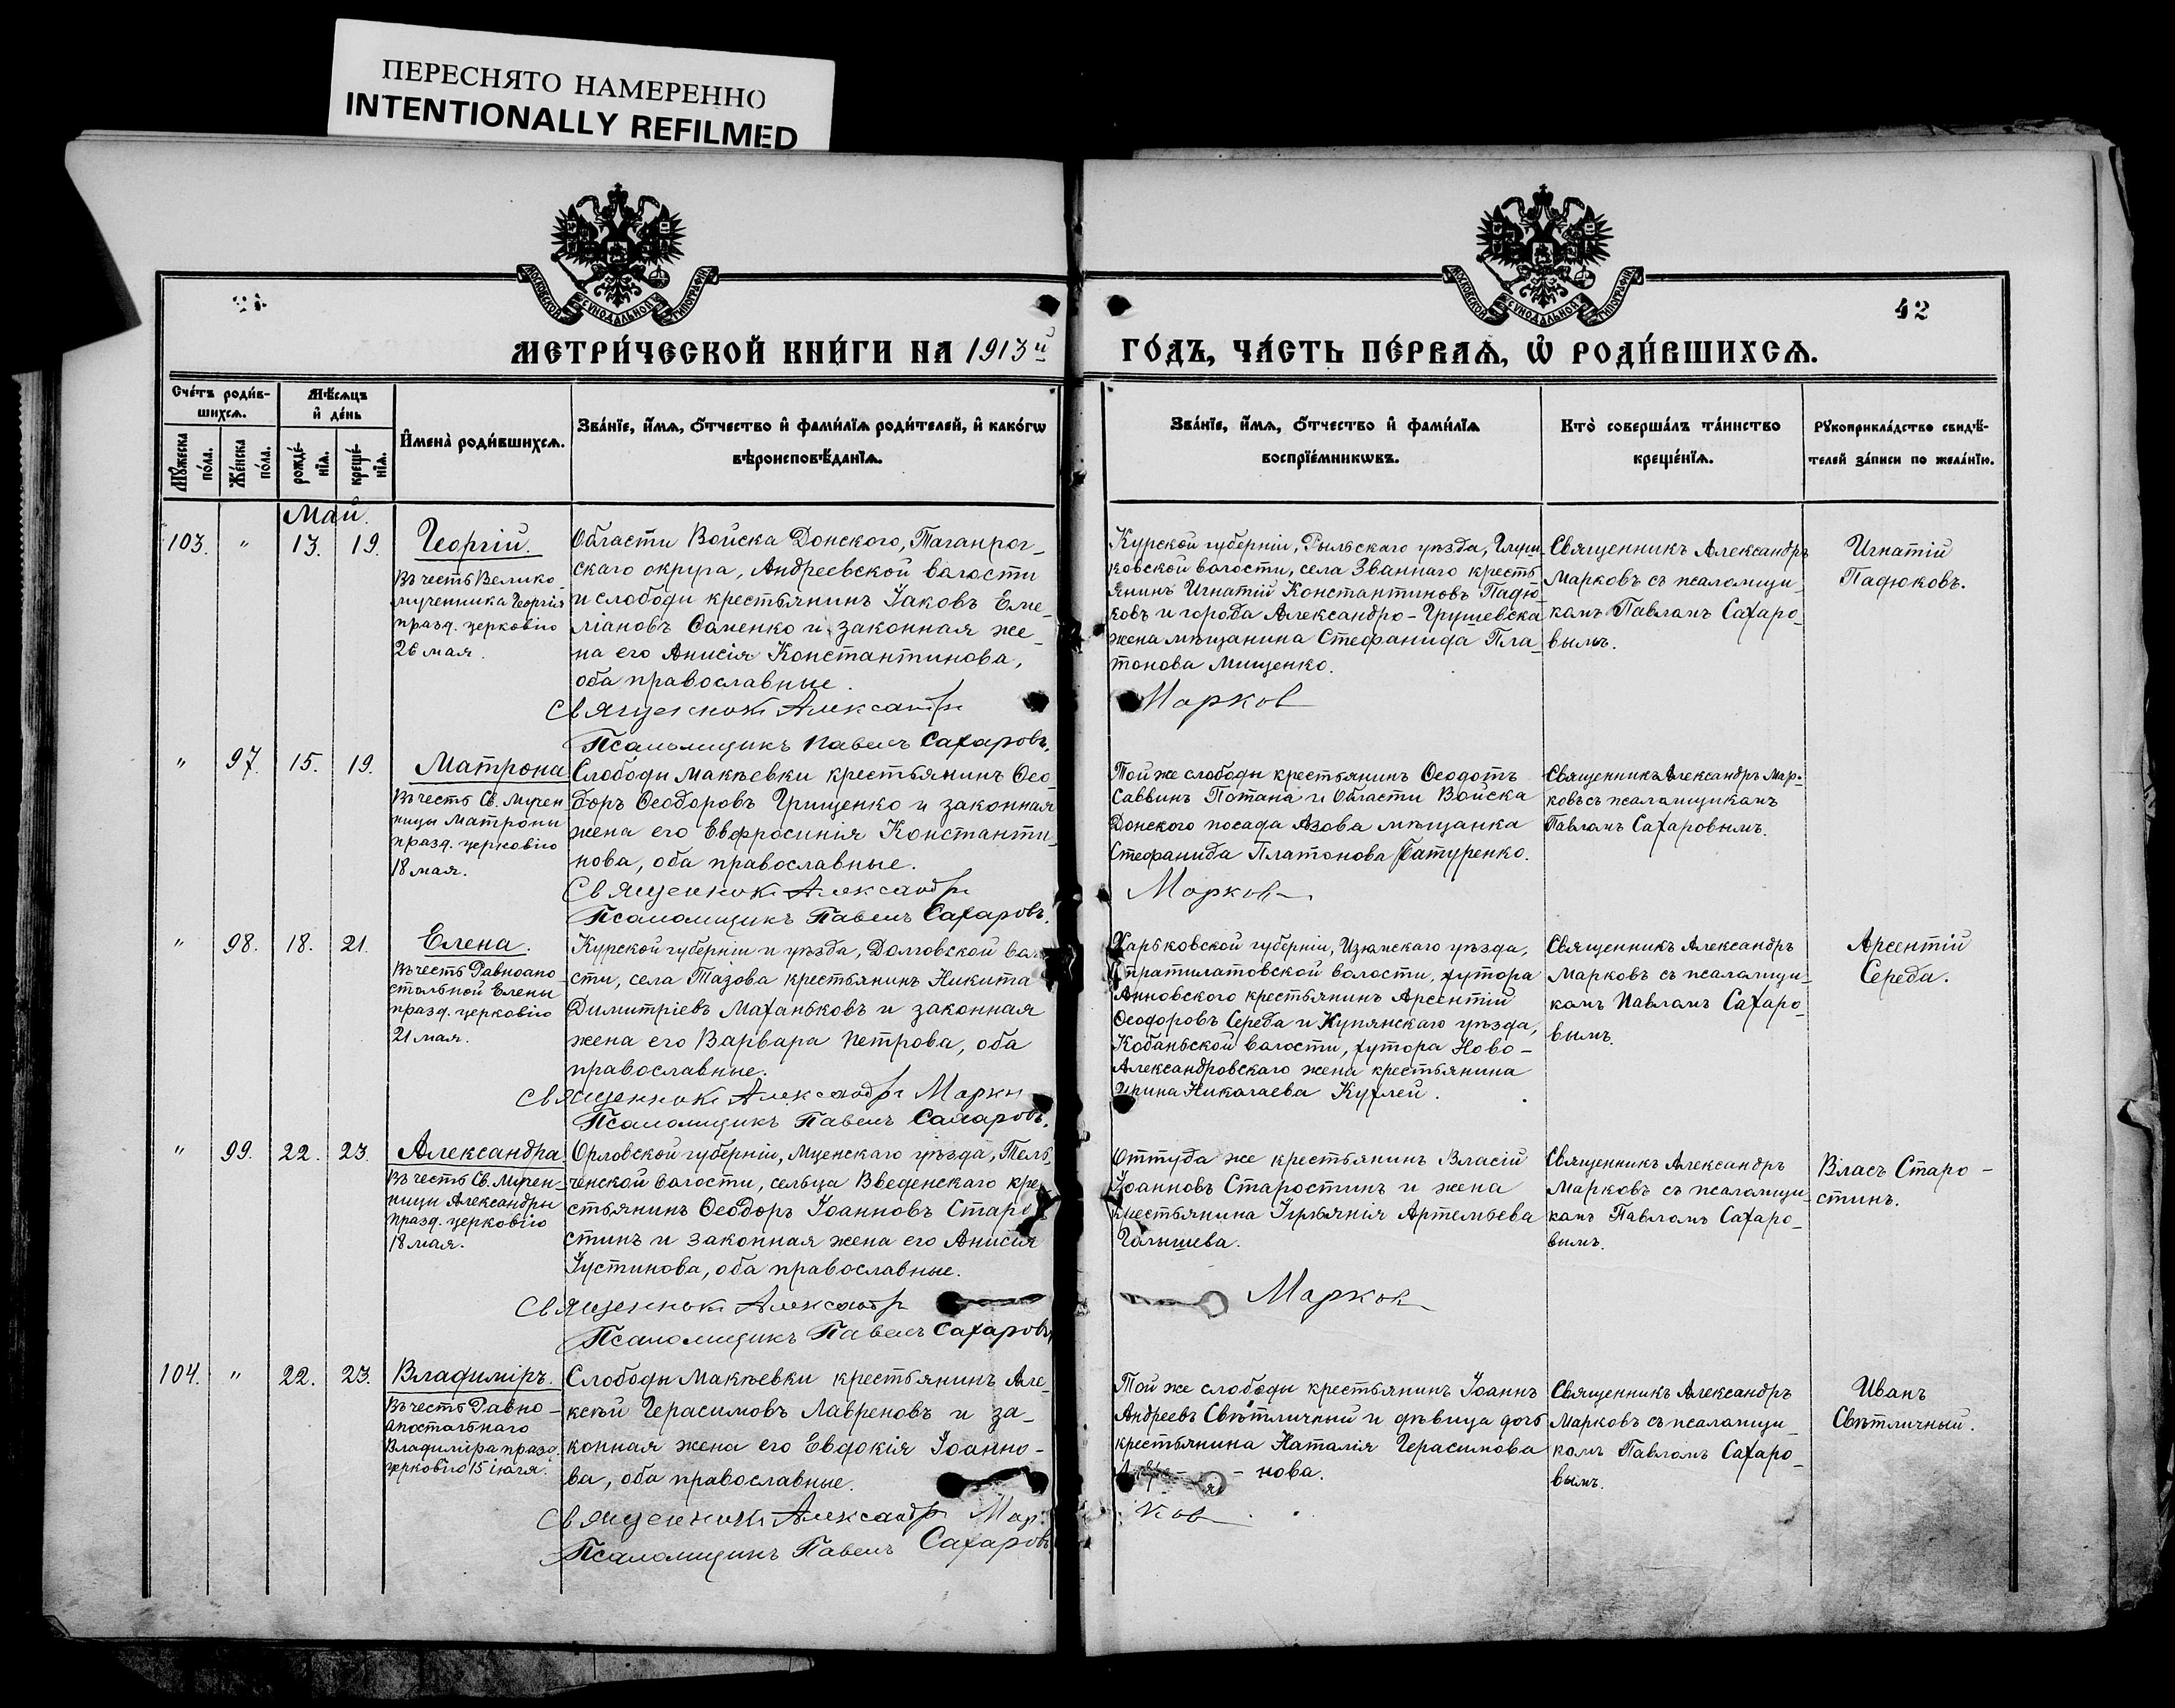 ПЕРЕСНЯТО НАМЕРЕННО
INTENTIONALLY REFILMED
МОСКОВСКОЙ СѴНОДАЛЬНОЙ ТИПОГРАФІИ
МОСКОВСКОЙ СѴНОДАЛЬНОЙ ТИПОГРАФІИ
42
МЕТРИ́ЧЕСКОЙ КНИ́ГИ НА 1913й
ГО́ДЪ, ЧА́СТЬ ПЕ́РВАѦ, Ѡ҆ РОДИ́ВШИХСѦ.
Сче́тъ роди́в-
шихсѧ.
Мꙋ́жеска по́ла.
Же́нска по́ла.
Мѣ́сѧцъ
и҆ де́нь
рожде́-
нїѧ.
креще́-
нїѧ.
И҆мена̀ роди́вшихсѧ.
Зва́нїе, и҆́мѧ, ѻ҆́тчество и҆ фами́лїѧ роди́телей, и҆ како́гѡ
вѣроисповѣ́данїѧ.
Зва́нїе, и҆́мѧ, ѻ҆́тчество и҆ фами́лїѧ
воспрїе́мникѡвъ.
Кто̀ соверша́лъ та́инство
креще́нїѧ.
Рꙋкоприкла́дство свидѣ́-
телей за́писи по жела́нїю.
Май.
103. " 13. 19.
Георгій.
Въ честь Велико
мученника Георгія
празд. церковію
26 мая.
Области Войска Донского, Таганрог-
скаго округа, Андреевской волости
и слободы крестьянинъ Іаковъ Еме-
ліановъ Саменко и законная же-
на его Анисія Константинова,
оба православные.
Священникъ Александръ
Псаломщикъ Павелъ Сахаровъ.
Курской губерніи, Рыльскаго уѣзда, Глуш-
ковской волости, села Званнаго кресть
янинъ Игнатій Константиновъ Падю-
ковъ и города Александро-Грушевска
жена мѣщанина Стефанида Пла-
тонова Мищенко.
Марков
Священникъ Александръ
Марковъ съ псаломщи-
комъ Павломъ Сахаро-
вымъ.
Игнатій
Падюковъ.
" 97. 15. 19.
Матрона
Въ честь Св. Мучен
ницы Матроны
празд. церковію
18 мая.
Слободы Макѣевки крестьянинъ Ѳео-
доръ Ѳеодоровъ Грищенко и законная
жена его Евфросинія Константи-
нова, оба православные.
Священникъ Александръ
Псаломщикъ Павелъ Сахаровъ.
Той же слободы крестьянинъ Ѳеодотъ
Саввинъ Потана и Области Войска
Донского посада Азова мѣщанка
Стефанида Платонова Батуренко.
Марковъ
Священникъ Александръ Мар-
ковъ съ псаломщикомъ
Павломъ Сахаровымъ.
" 98. 18. 21.
Елена.
Въ честь Равноапо
стольной Елены
празд. церковію
21 мая.
Курской губерніи и уѣзда, Долговской воло
сти, села Тазова крестьянинъ Никита
Димитріевъ Маханьковъ и законная
жена его Варвара Петрова, оба
православные.
Священникъ Александръ Марков
Псаломщикъ Павелъ Сахаровъ.
Харьковской губерніи, Изюмскаго уѣзда,
волости, хутора
Анновского крестьянинъ Арсентій
Ѳеодоровъ Середа и Купянскаго уѣзда,
Кобаньской волости, хутора Ново-
Александровскаго жена крестьянина
Ирина Николаева Кухлей.
Священникъ Александръ
Марковъ съ псаломщи-
комъ Павломъ Сахаро-
вымъ.
Арсентій
Середа.
" 99. 22. 23.
Александра.
Въ честь Св. Мучен-
ницы Александры
празд. церковію
18 мая.
Орловской губерніи, Мценскаго уѣзда, Тель-
ченской волости, сельца Введенскаго кре-
стьянинъ Ѳеодоръ Іоанновъ Старо-
стинъ и законная жена его Анисія
Іустинова, оба православные.
Священникъ Александръ
Псаломщикъ Павелъ Сахаровъ
Оттуда же крестьянинъ Власій
Іоанновъ Старостинъ и жена
крестьянина Іуліанія Артемьева
Голышева.
Марков
Священникъ Александръ
Марковъ съ псаломщи-
комъ Павломъ Сахаро-
вымъ.
Власъ Старо-
стинъ.
104. " 22. 23.
Владиміръ.
Въ честь Равно-
апостольнаго
Владиміра празд.
церковію 15 іюля.
Слободы Макѣевки крестьянинъ Але-
ксѣй Герасимовъ Лавреновъ и за-
конная жена его Евдокія Іоанно-
ва, оба православные.
Священникъ Александръ Мар-
Псаломщикъ Павелъ Сахаровъ
Той же слободы крестьянинъ Іоаннъ
Андреевъ Свѣтличный и дѣвица дочь
крестьянина Наталія Герасимова
- нова.
ков
Священникъ Александръ
Марковъ съ псаломщи-
комъ Павломъ Сахаро-
вымъ.
Иванъ
Свѣтличный.